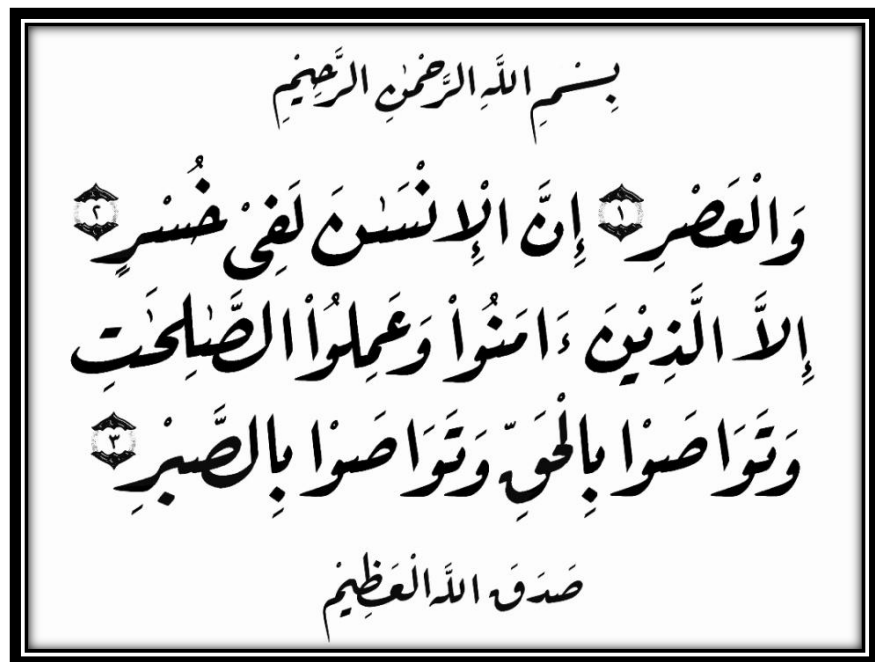 بِسْمِ اللَّهِ الرَّحْمٰنِ الرَّحِيْمِ
وَالْعَصْرِ ١ إِنَّ الْإِنْسَـٰنَ لَفِيْ خُسْرٍ ٢
إِلاَّ الَّذِيْنَ ءَامَنُواْ وَعَمِلُواْ الصَّـٰلِحَـٰتِ
وَتَوَاصَوْا بِالْحَقِّ وَتَوَاصَوْا بِالصَّبْرِ ٣
صَدَقَ اللَّهُ الْعَظِيْمُ